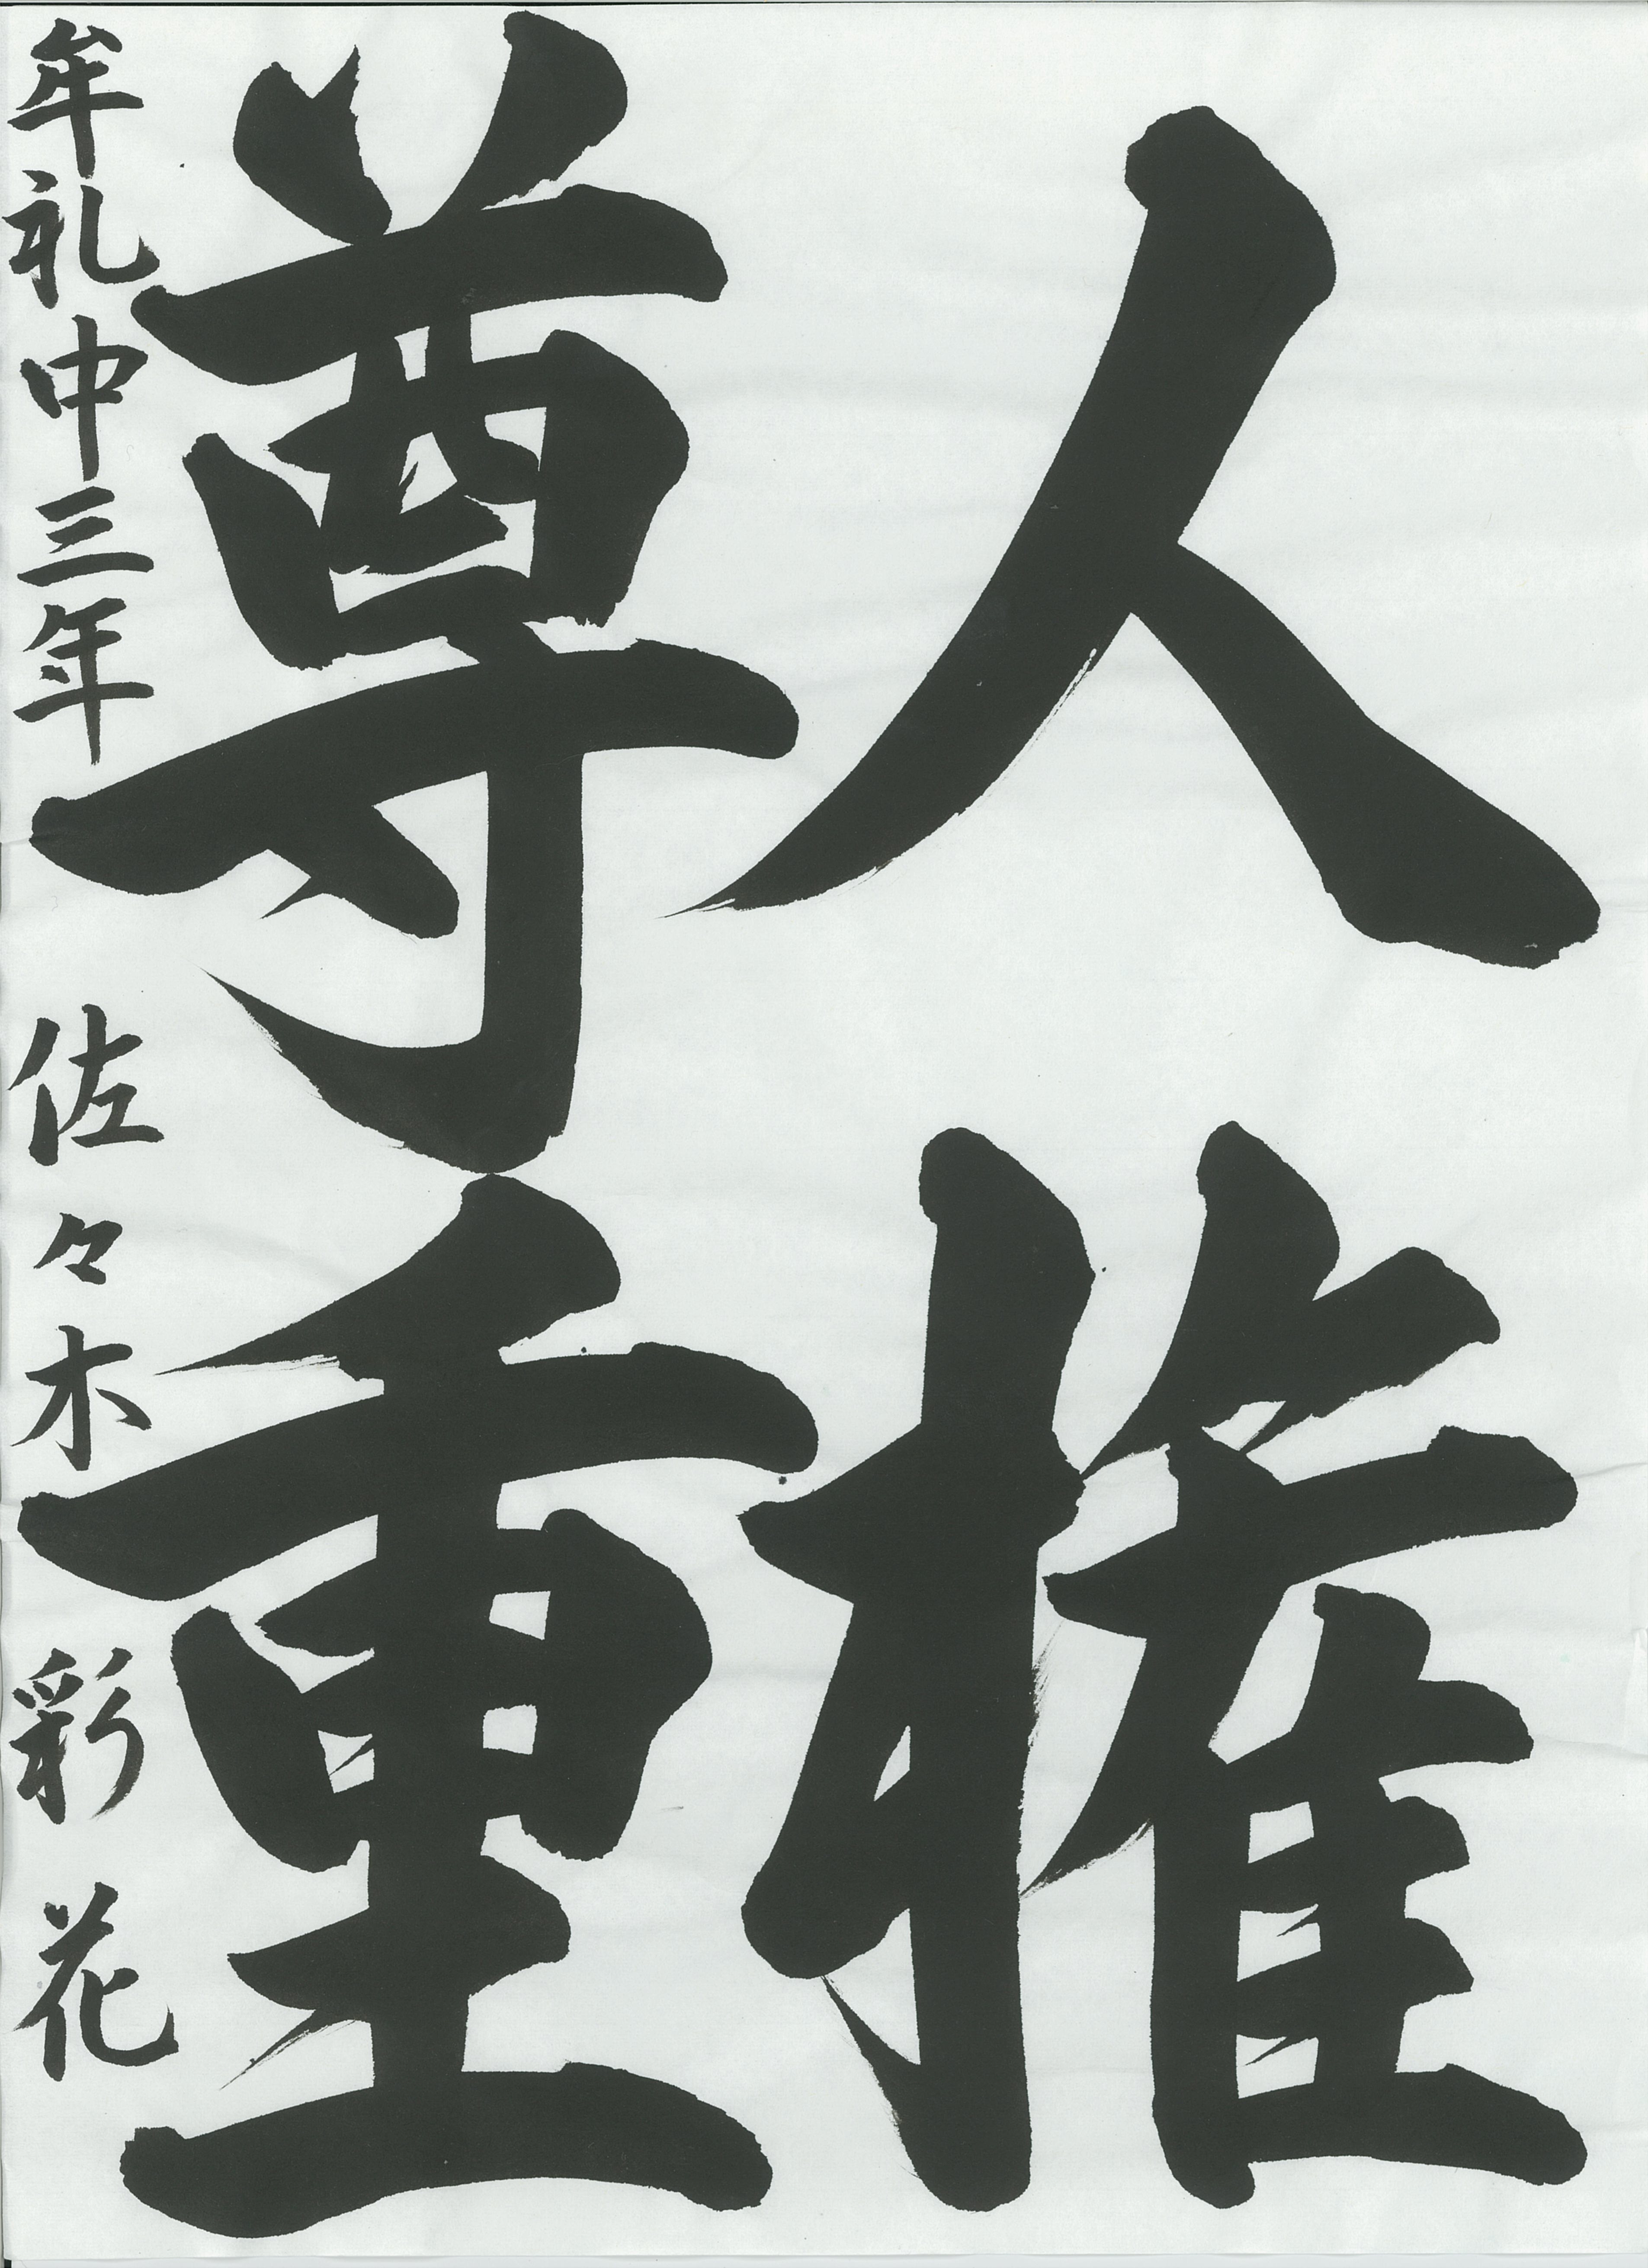 人権
尊重
牟礼中三年 佐々木彩花